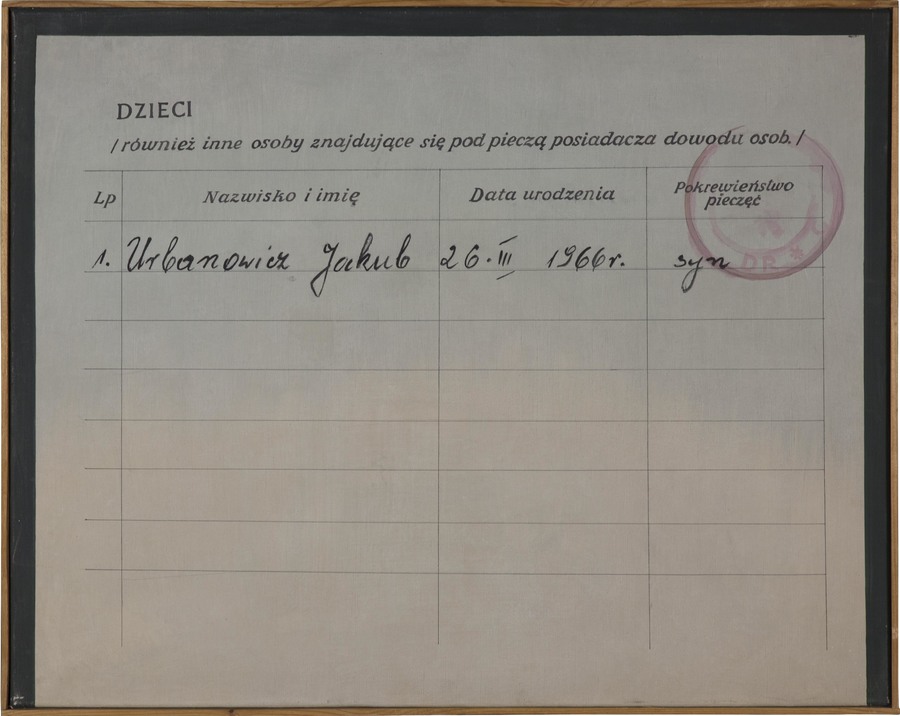 DZIECI
/również inne osoby znajdujące się pod pieczą posiadacza dowodu osob./
Lp Nazwisko i imię Data urodzenia Pokrewieństwo pieczęć
1. Urbanowicz Jakub 26. III 1966 r. syn